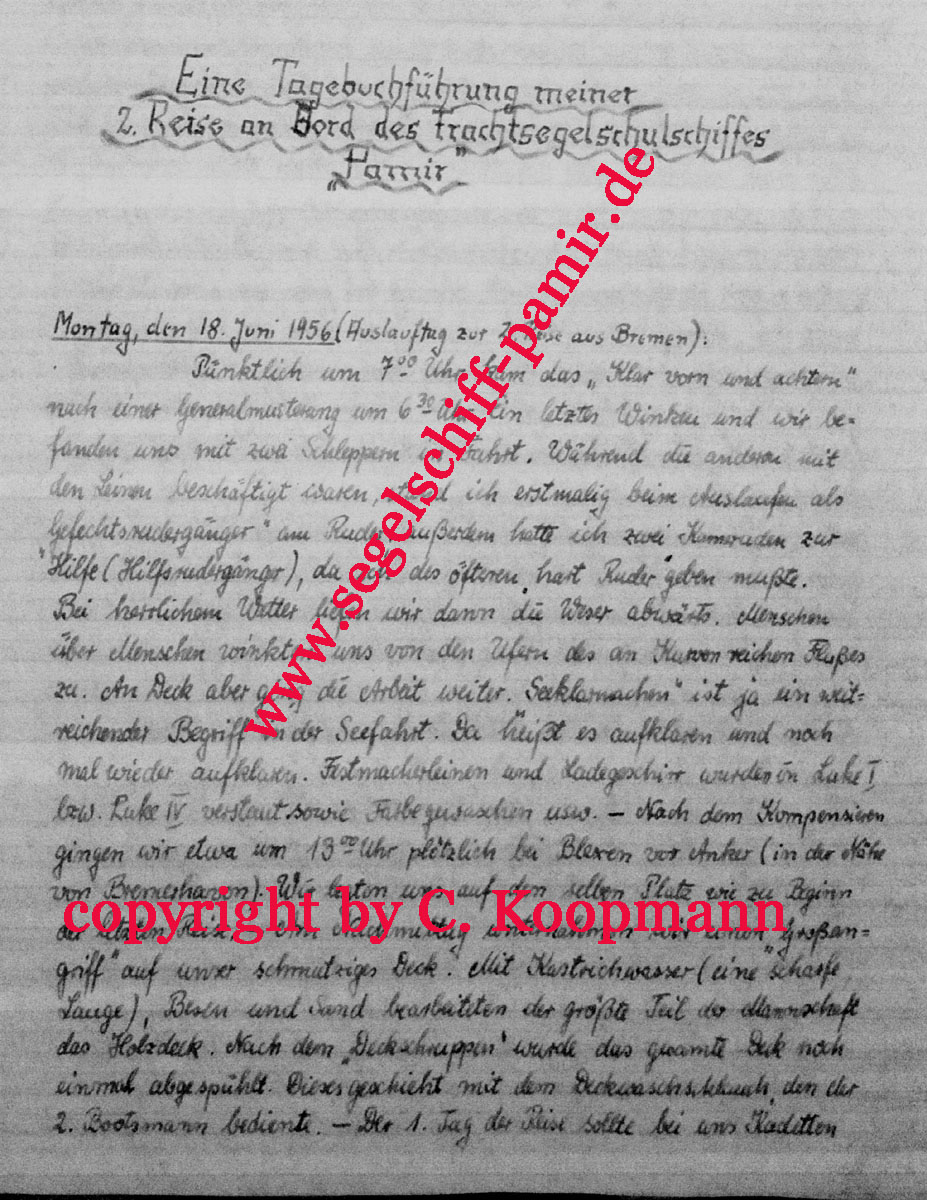 Eine Tagebuchführung meiner
2. Reise an Bord des Frachtsegelschulschiffes
„Pamir"
Montag, den 18. Juni 1956 (Auslauftag zur 2. Reise aus Bremen):
Pünktlich um 7⁰⁰ Uhr kam das „Klar vorn und achtern"
nach einer Generalmusterung um 6³⁰ Uhr. Ein letztes Winken und wir be-
fanden uns mit zwei Schleppern in Fahrt. Während die anderen mit
den Leinen beschäftigt waren, stand ich erstmalig beim Auslaufen als
„Gefechtsrudergänger" am Ruder, außerdem hatte ich zwei Kameraden zur
Hilfe (Hilfsrudergänger), da ich des öfteren „hart Ruder" geben mußte.
Bei herrlichem Wetter liefen wir dann die Weser abwärts. Menschen
über Menschen winkten uns von den Ufern des an Kurven reichen Flußes
zu. An Deck aber ging die Arbeit weiter. „Seeklarmachen" ist ja ein weit-
reichender Begriff in der Seefahrt. Da heißt es aufklaren und noch
mal wieder aufklaren. Festmacherleinen und Ladegeschirr wurden in Luke I
bzw. Luke IV verstaut sowie Farbe gewaschen usw. – Nach dem Kompensieren
gingen wir etwa um 13⁰⁰ Uhr plötzlich bei Blexen vor Anker (in der Nähe
von Bremerhaven). Wir lagen uns auf den selben Platz wie zu Beginn
der letzten Reise. Am Nachmittag unternahmen wir einen „Großan-
griff" auf unser schmutziges Deck. Mit Kastrichwasser (eine scharfe
Lauge), Besen und Sand bearbeiteten der größte Teil der Mannschaft
das Holzdeck. Nach dem „Deckschruppen" wurde das gesamte Deck noch
einmal abgespühlt. Dieses geschieht mit dem Deckwaschschlauch, den der
2. Bootsmann bediente. – Der 1. Tag der Reise sollte bei uns Kadetten
www.segelschiff-pamir.de
copyright by C. Koopmann